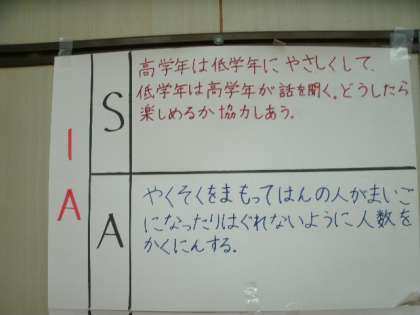 IA
S
高学年は低学年に、やさしくして、
低学年は高学年が話を聞く。どうしたら
楽しめるか協力しあう。
A
やくそくをまもってはんの人がまいご
になったりはぐれないように人数を
かくにんする。